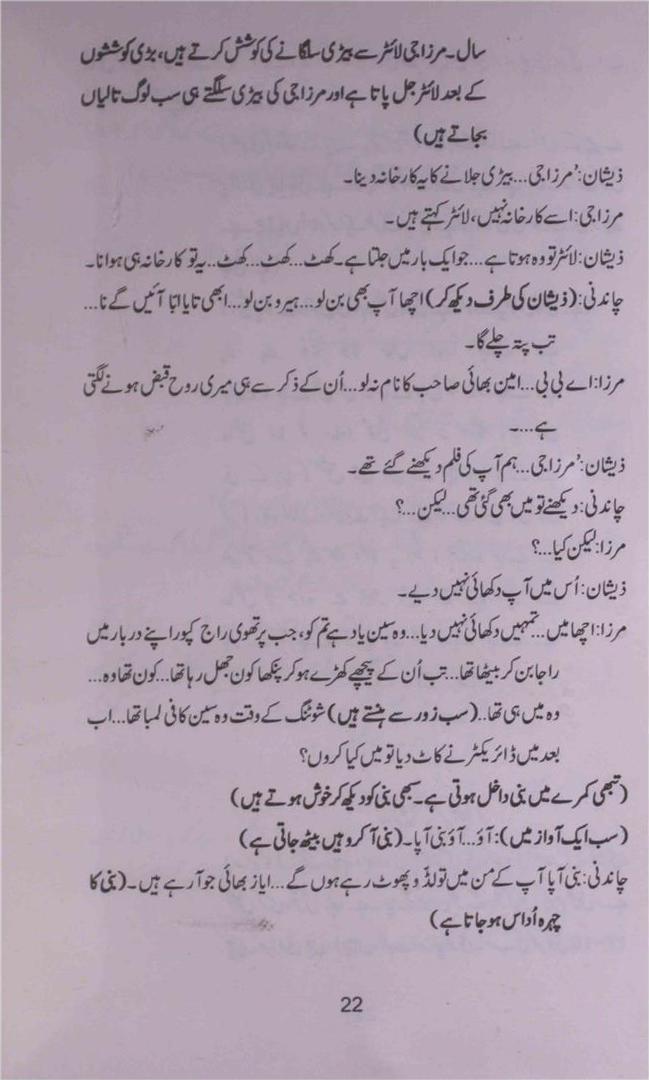 سال۔ مرزا جی لائٹر سے بیڑی سلگانے کی کوشش کرتے ہیں، بڑی کوششوں
کے بعد لائٹر جل پاتا ہے اور مرزا جی کی بیڑی سلگتے ہی سب لوگ تالیاں
بجاتے ہیں)
ذیشان: ’مرزا جی... بیڑی جلانے کا یہ کارخانہ دینا۔
مرزا جی: اسے کارخانہ نہیں، لائٹر کہتے ہیں۔
ذیشان: لائٹر تو وہ ہوتا ہے... جو ایک بار میں جلتا ہے۔ کھٹ... کھٹ... کھٹ.. یہ تو کارخانہ ہی ہوا نا۔
چاندنی: (ذیشان کی طرف دیکھ کر) اچھا آپ بھی بن لو... ہیرو بن لو... ابھی تایا ابّا آئیں گے نا...
تب پتہ چلے گا۔
مرزا: اے بی بی... امین بھائی صاحب کا نام نہ لو... اُن کے ذکر سے ہی میری روح قبض ہونے لگتی
ہے...۔
ذیشان: ’مرزا جی... ہم آپ کی فلم دیکھنے گئے تھے۔
چاندنی: دیکھنے تو میں بھی گئی تھی... لیکن...؟
مرزا: لیکن کیا...؟
ذیشان: اُس میں آپ دکھائی نہیں دیے۔
مرزا: اچھا میں... تمہیں دکھائی نہیں دیا... وہ سین یاد ہے تم کو، جب پرتھوی راج کپور اپنے دربار میں
راجا بن کر بیٹھا تھا... تب اُن کے پیچھے کھڑے ہو کر پنکھا کون جھل رہا تھا... کون تھا وہ...
وہ میں ہی تھا.. (سب زور سے ہنستے ہیں) شوٹنگ کے وقت وہ سین کافی لمبا تھا... اب
بعد میں ڈائریکٹر نے کاٹ دیا تو میں کیا کروں؟
(تبھی کمرے میں بنی داخل ہوتی ہے۔ سبھی بنی کو دیکھ کر خوش ہوتے ہیں)
(سب ایک آواز میں): آؤ... آؤ بنی آپا۔ (بنی آ کر وہیں بیٹھ جاتی ہے)
چاندنی: بنی آپا آپ کے من میں تو لڈّو پھوٹ رہے ہوں گے... ایاز بھائی جو آ رہے ہیں۔ (بنی کا
چہرہ اُداس ہو جاتا ہے)
22